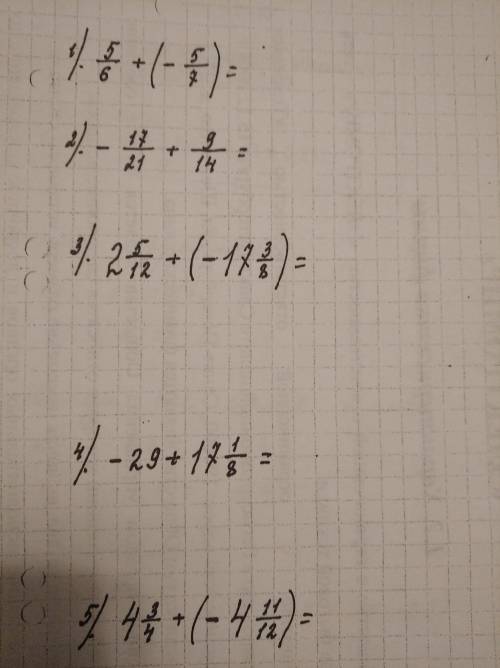 1). 5/6 + (- 5/7) =
2). - 17/21 + 9/14 =
3). 2 5/12 + (- 17 3/8) =
4). - 29 + 17 1/8 =
5). 4 3/4 + (- 4 11/12) =